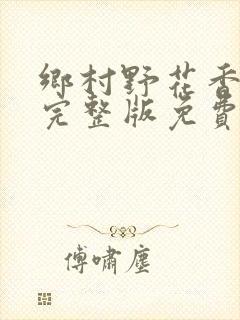 鄉村野花香
完整版免費
傅嘯塵